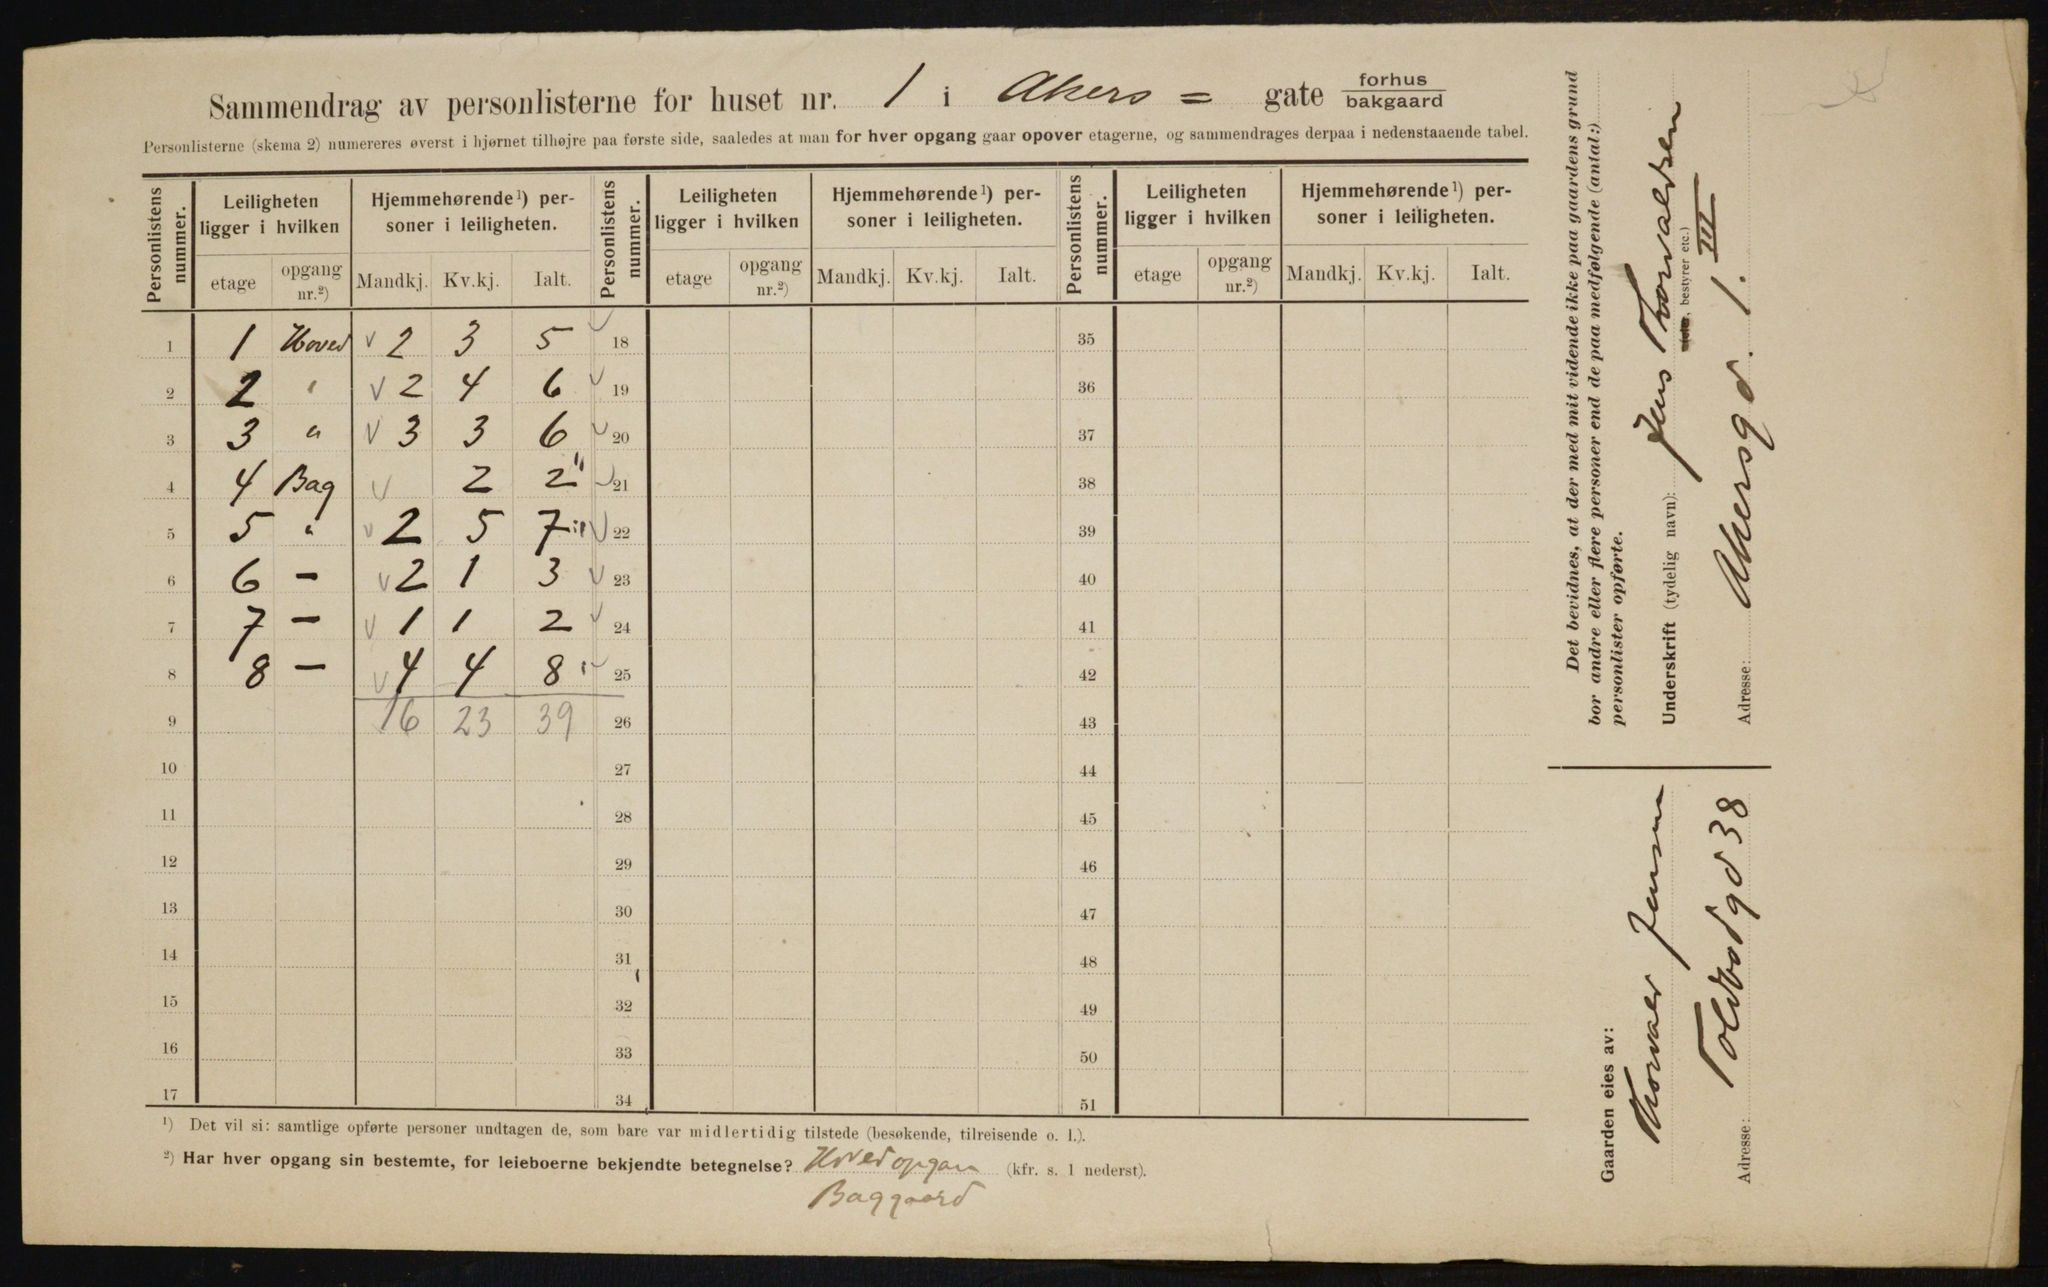 Sammendrag av personlisterne for huset nr. 1 i Akers = gate forhus
bakgaard
Personlisterne (skema 2) numereres øverst i hjørnet tilhøjre paa første side, saaledes at man for hver opgang gaar opover etagerne, og sammendrages derpaa i nedenstaaende tabel.
Personlistens nummer. Leiligheten ligger i hvilken Hjemmehørende¹) personer i leiligheten. Personlistens nummer. Leiligheten ligger i hvilken Hjemmehørende¹) personer i leiligheten. Personlistens nummer. Leiligheten ligger i hvilken Hjemmehørende¹) personer i leiligheten.
etage opgang nr.²) Mandkj. Kv.kj. Ialt. etage opgang nr.²) Mandkj. Kv.kj. Ialt. etage opgang nr.²) Mandkj. Kv.kj. Ialt.
1 1 Hoved 2 3 5 18 35
2 2 " 2 4 6 19 36
3 3 " 3 3 6 20 37
4 4 Bag 2 2 21 38
5 5 " 2 5 7 22 39
6 6 – 2 1 3 23 40
7 7 – 1 1 2 24 41
8 8 – 4 4 8 25 42
9 16 23 39 26 43
10 27 44
11 28 45
12 29 46
13 30 47
14 31 48
15 32 49
16 33 50
17 34 51
¹) Det vil si: samtlige opførte personer undtagen de, som bare var midlertidig tilstede (besøkende, tilreisende o. l.).
²) Har hver opgang sin bestemte, for leieboerne bekjendte betegnelse? Hovedopgan (kfr. s. 1 nederst).
Baggaard
Det bevidnes, at der med mit vidende ikke paa gaardens grund
bor andre eller flere personer end de paa medfølgende (antal:)
personlister opførte.
Underskrift (tydelig navn): Jens Thorvaldsen
bestyrer etc.)
Adresse: Akersgd. 1. III
Gaarden eies av:
Thorvald Jensen
Adresse: Toldbodgd 38